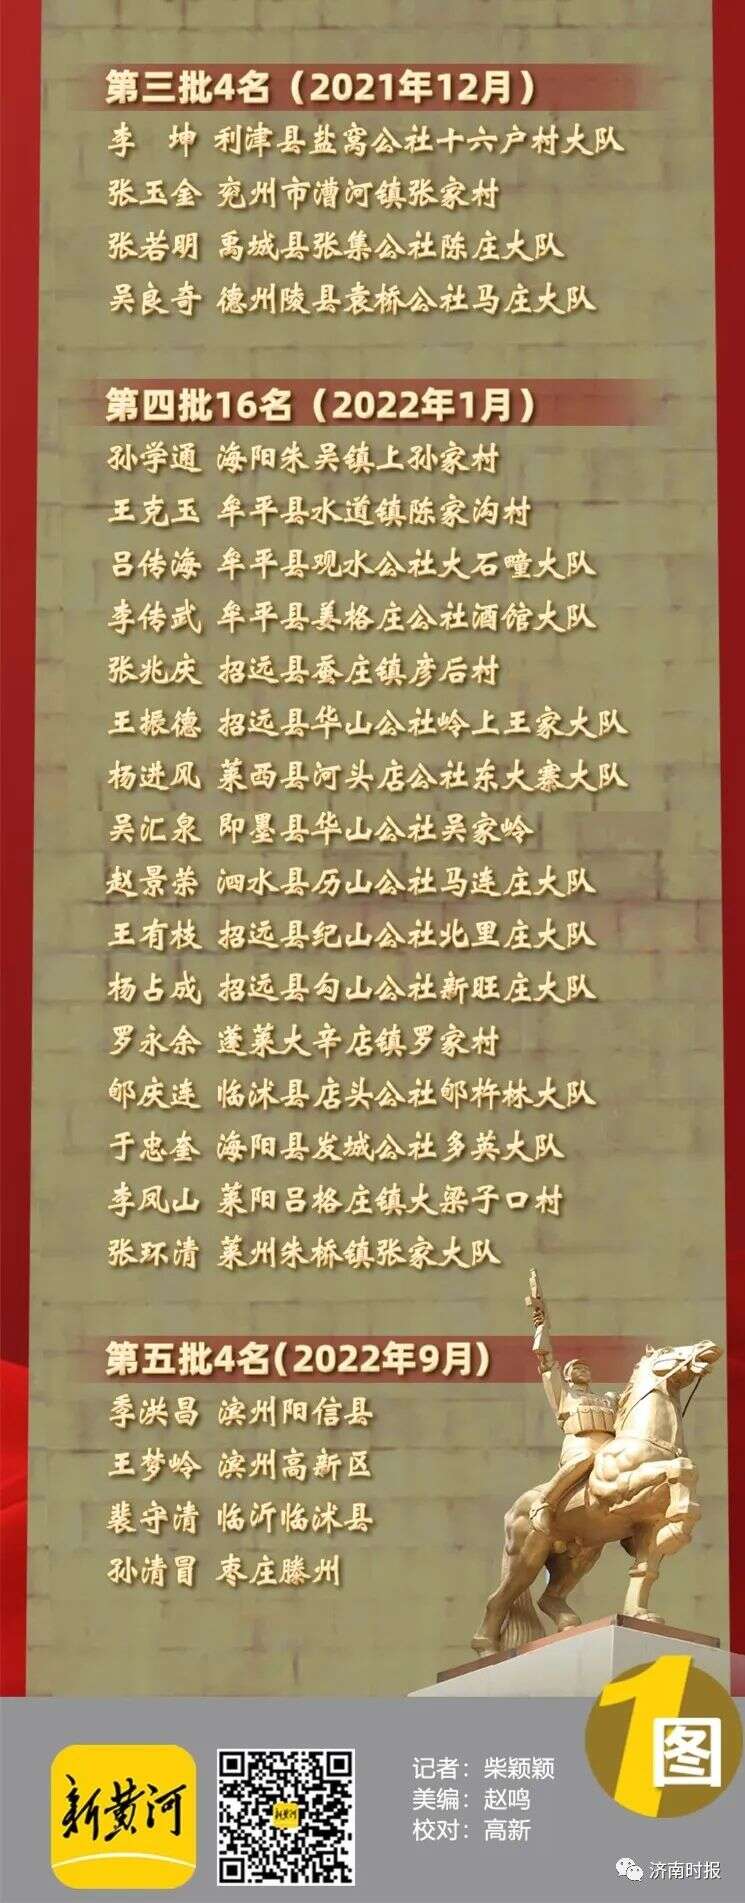 第三批4名（2021年12月）
李 坤 利津县盐窝公社十六户村大队
张玉金 兖州市漕河镇张家村
张若明 禹城县张集公社陈庄大队
吴良奇 德州陵县袁桥公社马庄大队
第四批16名（2022年1月）
孙学通 海阳朱吴镇上孙家村
王克玉 牟平县水道镇陈家沟村
吕传海 牟平县观水公社大石疃大队
李传武 牟平县姜格庄公社酒馆大队
张兆庆 招远县蚕庄镇彦后村
王振德 招远县华山公社岭上王家大队
杨进风 莱西县河头店公社东大寨大队
吴汇泉 即墨县华山公社吴家岭
赵景荣 泗水县历山公社马连庄大队
王有枝 招远县纪山公社北里庄大队
杨占成 招远县勾山公社新旺庄大队
罗永余 蓬莱大辛店镇罗家村
郇庆连 临沭县店头公社郇杵林大队
于忠奎 海阳县发城公社多英大队
李凤山 莱阳吕格庄镇大梁子口村
张环清 莱州朱桥镇张家大队
第五批4名(2022年9月)
季洪昌 滨州阳信县
王梦岭 滨州高新区
裴守清 临沂临沭县
孙清冒 枣庄滕州
新黄河
新黄河
记者：柴颖颖
美编：赵鸣
校对：高新
1图
济南时报